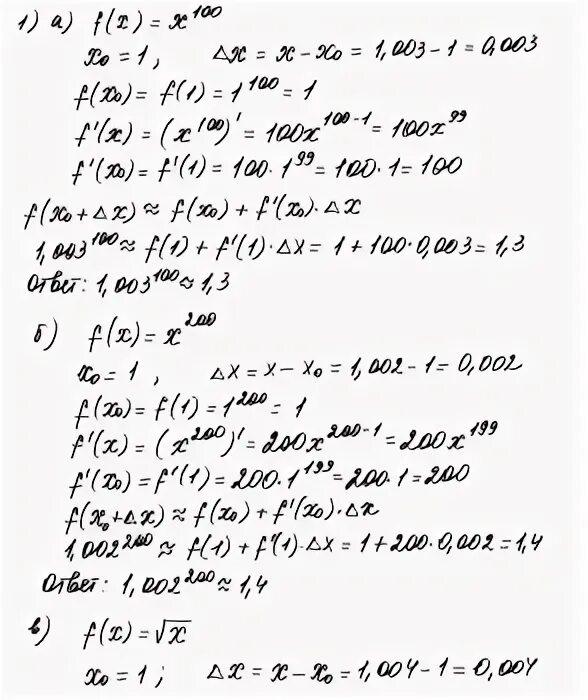 1) а) f(x) = x¹⁰⁰
x₀ = 1 , Δx = x - x₀ = 1,003 - 1 = 0,003
f(x₀) = f(1) = 1¹⁰⁰ = 1
f'(x) = (x¹⁰⁰)' = 100x¹⁰⁰⁻¹ = 100x⁹⁹
f'(x₀) = f'(1) = 100·1⁹⁹ = 100·1 = 100
f(x₀ + Δx) ≈ f(x₀) + f'(x₀)·Δx
1,003¹⁰⁰ ≈ f(1) + f'(1)·Δx = 1 + 100·0,003 = 1,3
Ответ: 1,003¹⁰⁰ ≈ 1,3
б) f(x) = x²⁰⁰
x₀ = 1 , Δx = x - x₀ = 1,002 - 1 = 0,002
f(x₀) = f(1) = 1²⁰⁰ = 1
f'(x) = (x²⁰⁰)' = 200x²⁰⁰⁻¹ = 200x¹⁹⁹
f'(x₀) = f'(1) = 200·1¹⁹⁹ = 200·1 = 200
f(x₀ + Δx) ≈ f(x₀) + f'(x₀)·Δx
1,002²⁰⁰ ≈ f(1) + f'(1)·Δx = 1 + 200·0,002 = 1,4
Ответ: 1,002²⁰⁰ ≈ 1,4
в) f(x) = √x
x₀ = 1 ; Δx = x - x₀ = 1,004 - 1 = 0,004